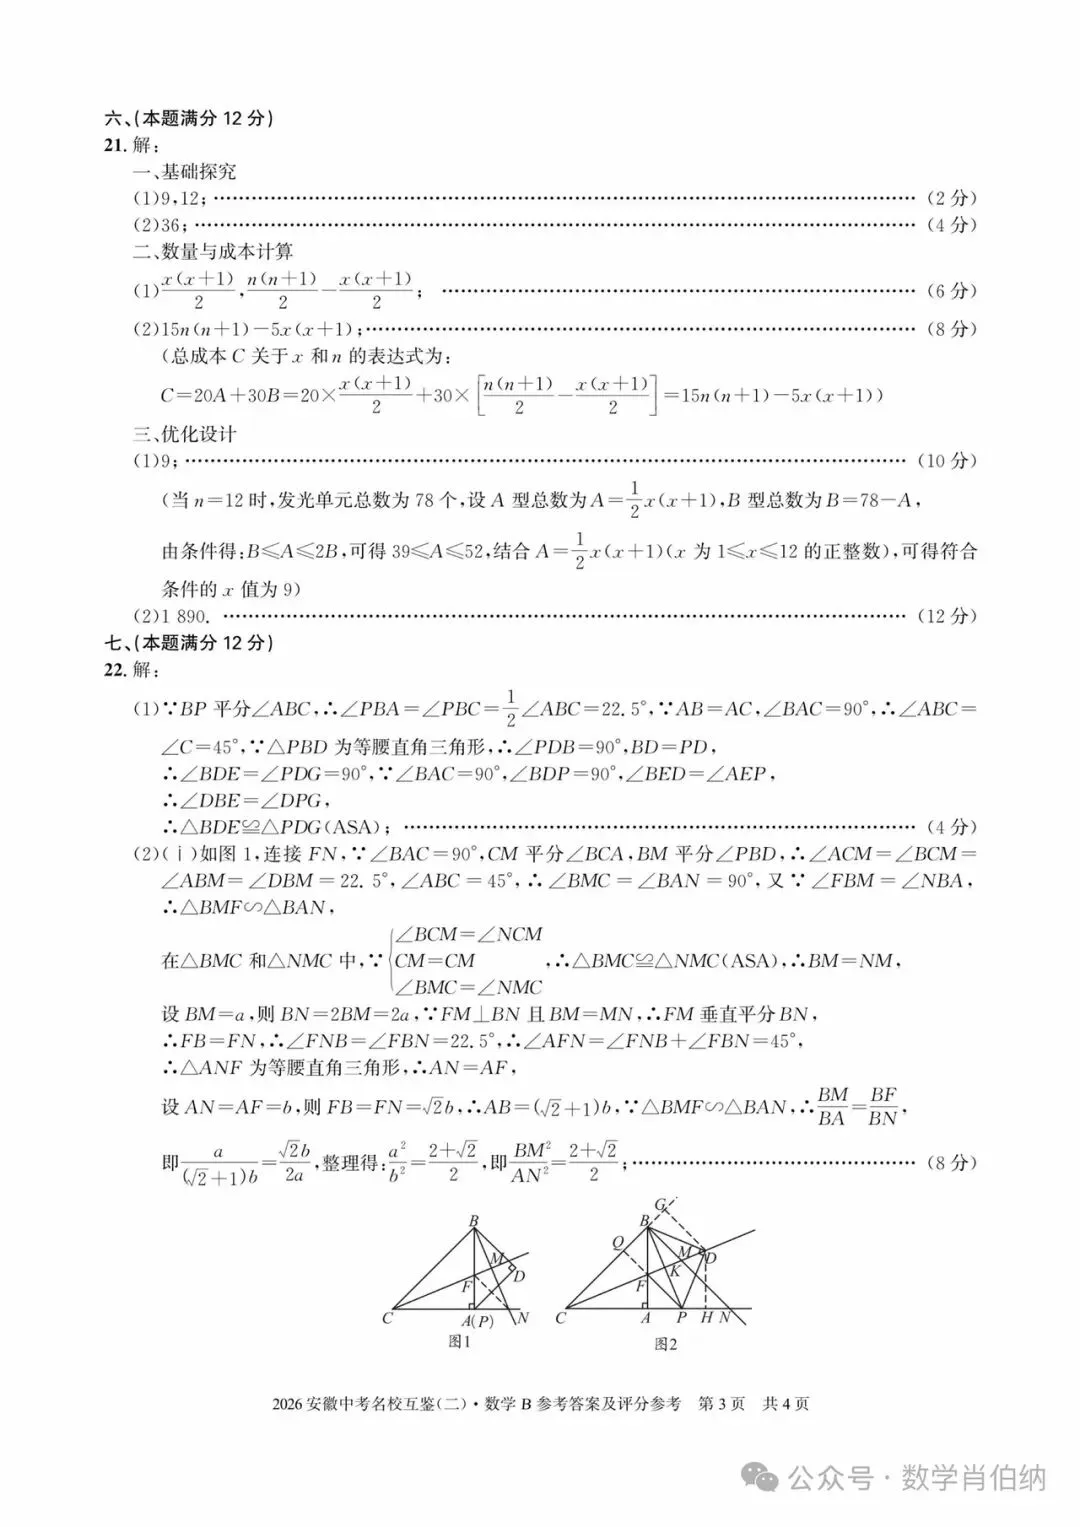 六、(本题满分 12 分)
21. 解：
一、基础探究
(1)9,12; …… (2 分)
(2)36; …… (4 分)
二、数量与成本计算
(1)x(x+1)/2, n(n+1)/2 − x(x+1)/2; …… (6 分)
(2)15n(n+1)−5x(x+1); …… (8 分)
(总成本 C 关于 x 和 n 的表达式为:
C=20A+30B=20×x(x+1)/2+30×[n(n+1)/2−x(x+1)/2]=15n(n+1)−5x(x+1))
三、优化设计
(1)9; …… (10 分)
(当 n=12 时,发光单元总数为 78 个,设 A 型总数为 A=1/2x(x+1),B 型总数为 B=78−A,
由条件得:B≤A≤2B,可得 39≤A≤52,结合 A=1/2x(x+1)(x 为 1≤x≤12 的正整数),可得符合
条件的 x 值为 9)
(2)1 890. …… (12 分)
七、(本题满分 12 分)
22. 解：
(1)∵BP 平分∠ABC,∴∠PBA=∠PBC=1/2∠ABC=22.5°,∵AB=AC,∠BAC=90°,∴∠ABC=
∠C=45°,∵△PBD 为等腰直角三角形,∴∠PDB=90°,BD=PD,
∴∠BDE=∠PDG=90°,∵∠BAC=90°,∠BDP=90°,∠BED=∠AEP,
∴∠DBE=∠DPG,
∴△BDE≌△PDG(ASA); …… (4 分)
(2)(ⅰ)如图 1,连接 FN,∵∠BAC=90°,CM 平分∠BCA,BM 平分∠PBD,∴∠ACM=∠BCM=
∠ABM=∠DBM=22.5°,∠ABC=45°,∴∠BMC=∠BAN=90°,又∵∠FBM=∠NBA,
∴△BMF∽△BAN,
在△BMC 和△NMC 中,∵{∠BCM=∠NCM
CM=CM
∠BMC=∠NMC ,∴△BMC≌△NMC(ASA),∴BM=NM,
设 BM=a,则 BN=2BM=2a,∵FM⊥BN 且 BM=MN,∴FM 垂直平分 BN,
∴FB=FN,∴∠FNB=∠FBN=22.5°,∴∠AFN=∠FNB+∠FBN=45°,
∴△ANF 为等腰直角三角形,∴AN=AF,
设 AN=AF=b,则 FB=FN=√2b,∴AB=(√2+1)b,∵△BMF∽△BAN,∴BM/BA=BF/BN,
即a/(√2+1)b=√2b/2a,整理得:a²/b²=(2+√2)/2,即BM²/AN²=(2+√2)/2; …… (8 分)
B M D F C A(P) N
图1
G B Q M D K F C A P H N
图2
2026 安徽中考名校互鉴(二)·数学 B 参考答案及评分参考 第 3 页 共 4 页
公众号·数学肖伯纳